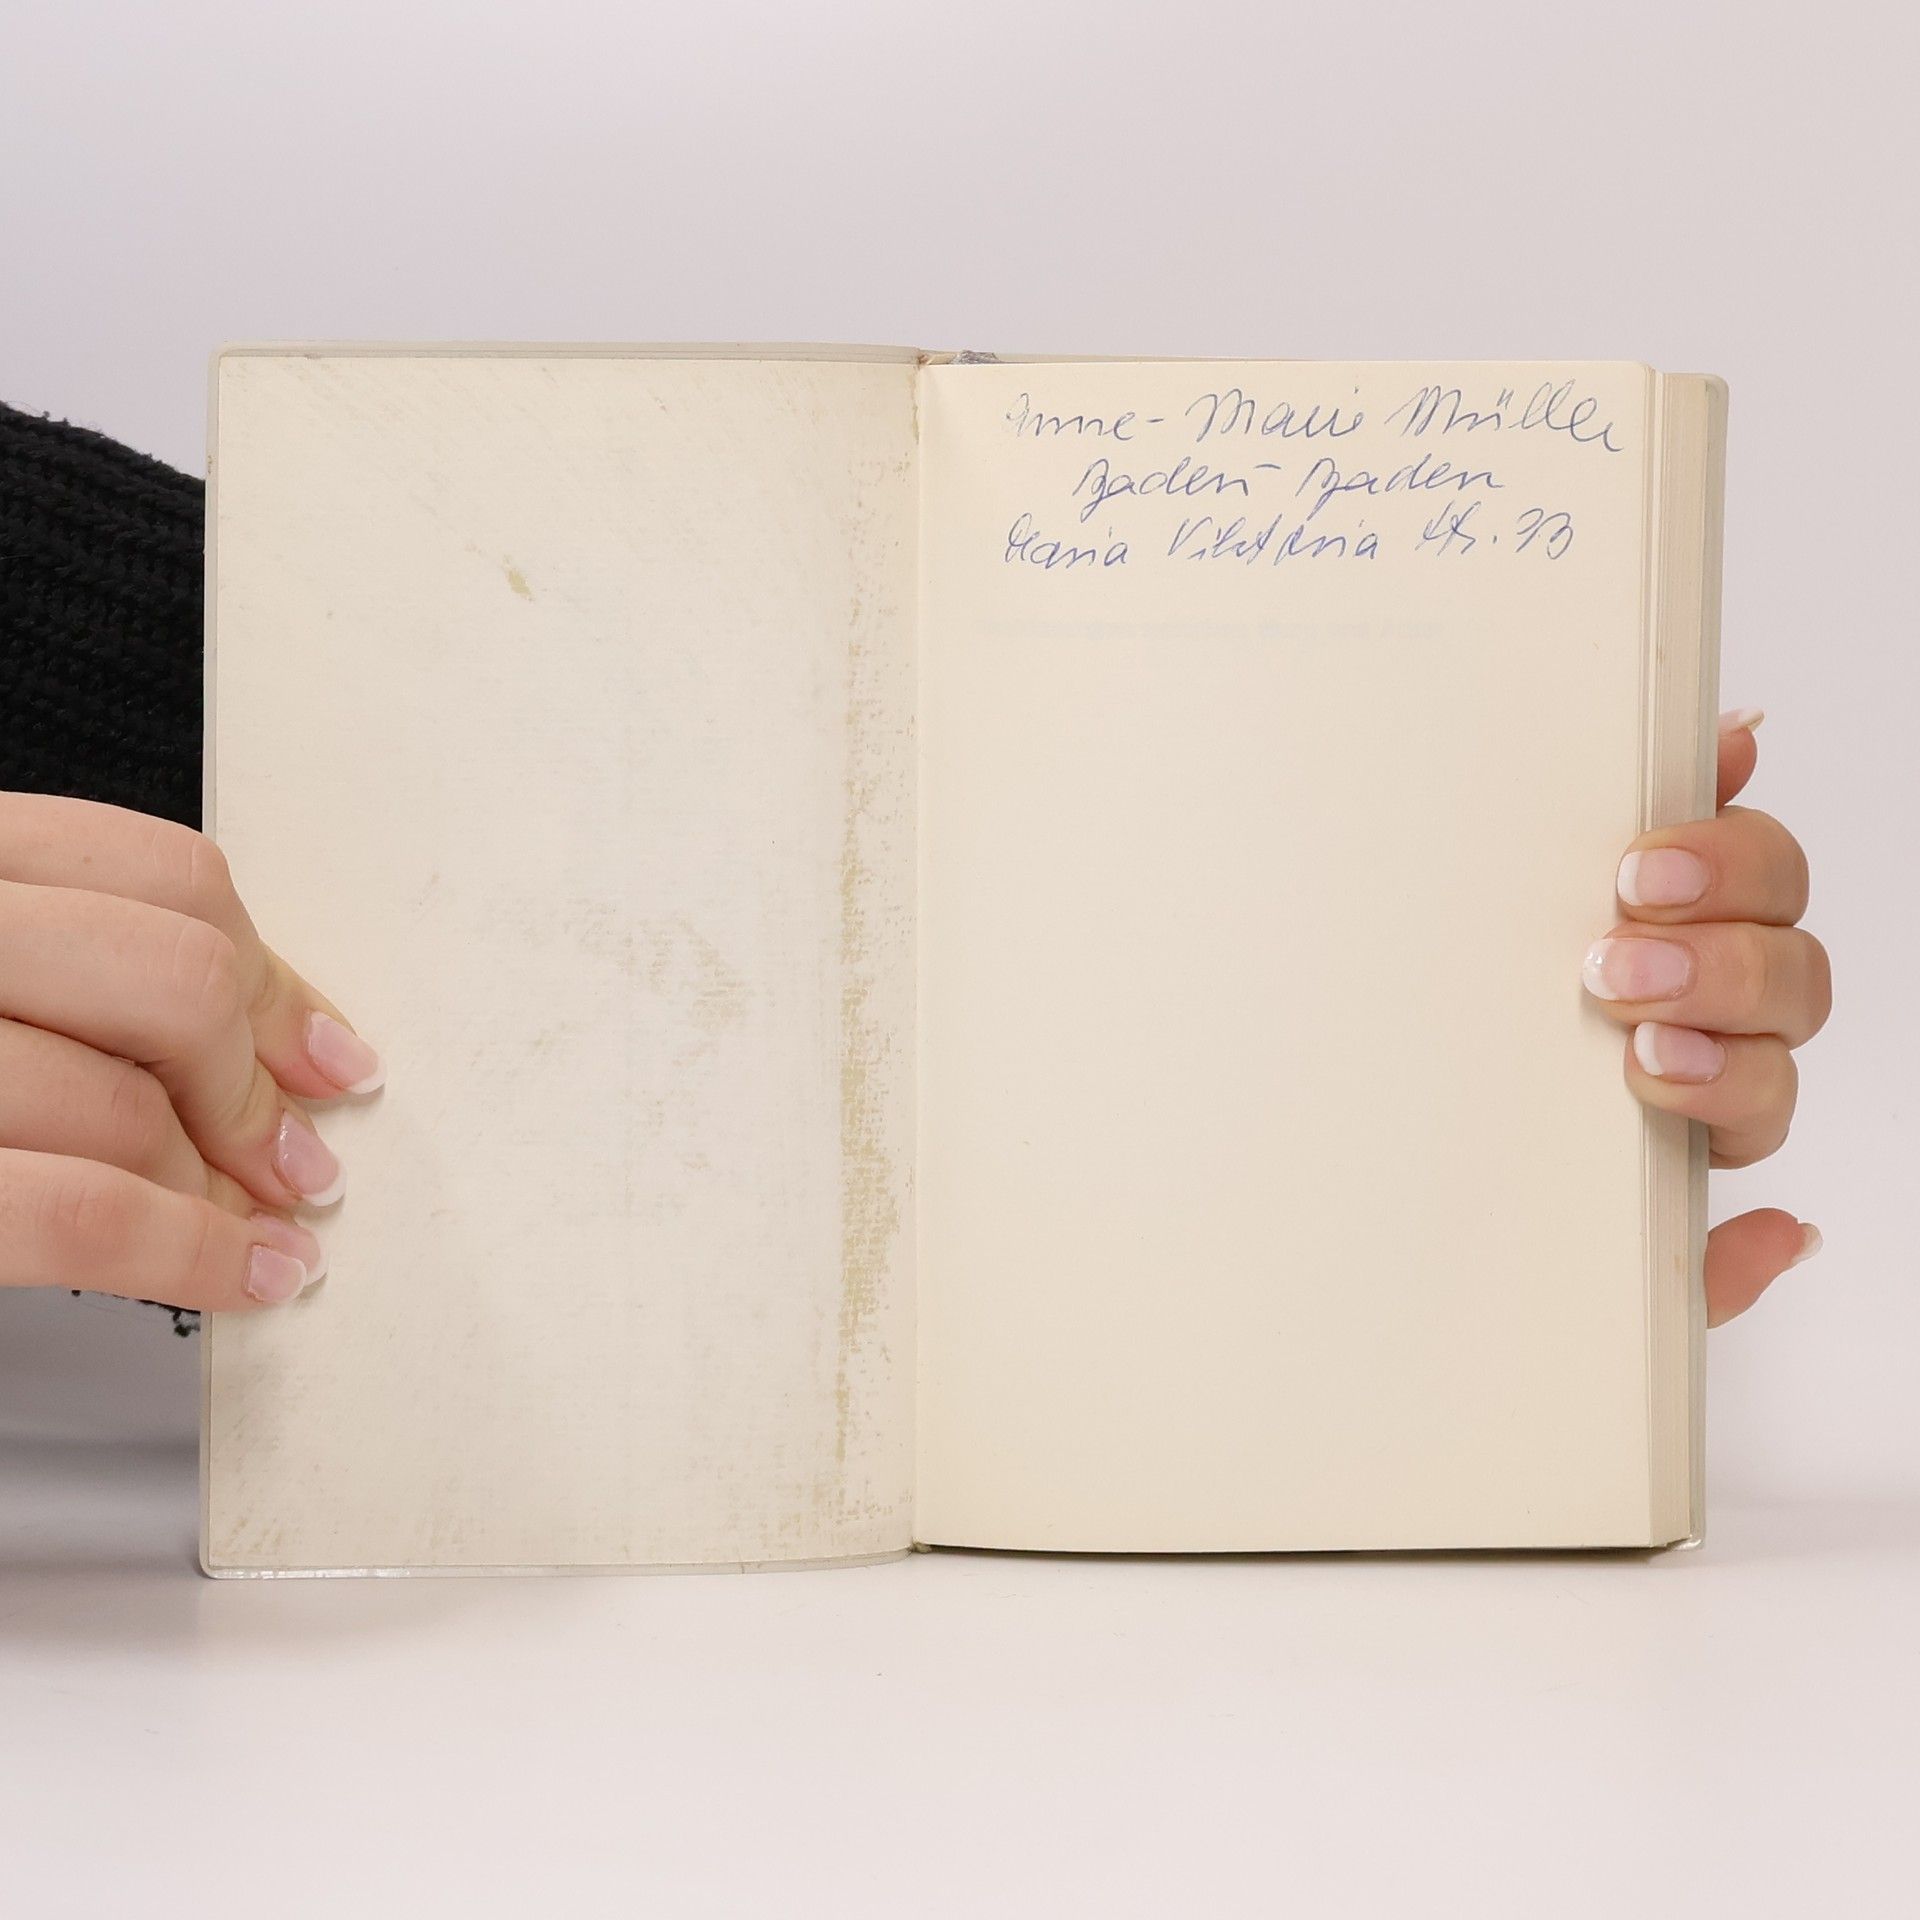 Anne-Marie Müller
Baden-Baden
Maria Viktoria Str.